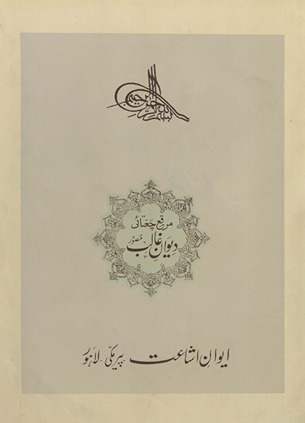 بسم الله الرحمن الرحیم
مرقع چغتائی
دیوان غالب مصور
ایوان اشاعت پیر مکی لاہور